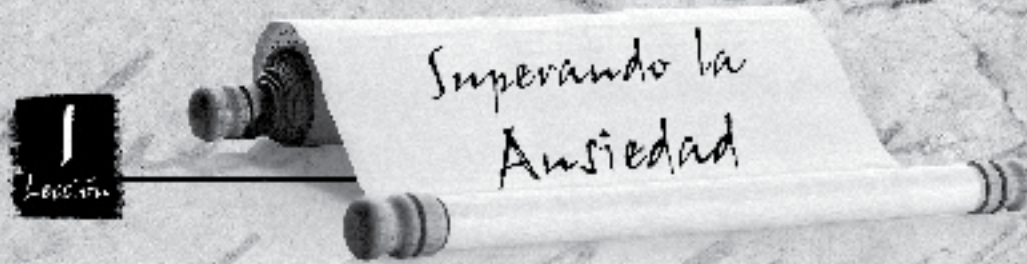 1
Lección
Superando la
Ansiedad